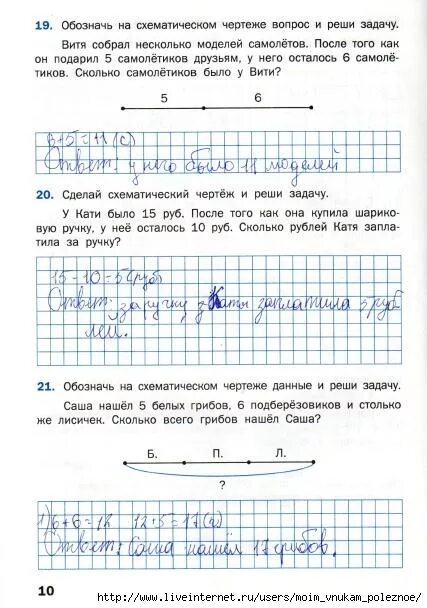 19. Обозначь на схематическом чертеже вопрос и реши задачу.
Витя собрал несколько моделей самолётов. После того как
он подарил 5 самолётиков друзьям, у него осталось 6 самолё-
тиков. Сколько самолётиков было у Вити?
5 6
+5=11 (с)
Ответ: у него было 11 моделей
20. Сделай схематический чертёж и реши задачу.
У Кати было 15 руб. После того как она купила шарико-
вую ручку, у неё осталось 10 руб. Сколько рублей Катя запла-
тила за ручку?
15-10=5(руб)
Ответ: за ручку, Катя заплатила 5 руб
лей.
21. Обозначь на схематическом чертеже данные и реши задачу.
Саша нашёл 5 белых грибов, 6 подберёзовиков и столько
же лисичек. Сколько всего грибов нашёл Саша?
Б. П. Л.
?
1) 6+6=12 12+5=17(г)
Ответ: Саша нашёл 17 грибов.
10
http://www.liveinternet.ru/users/moim_vnukam_poleznoe/